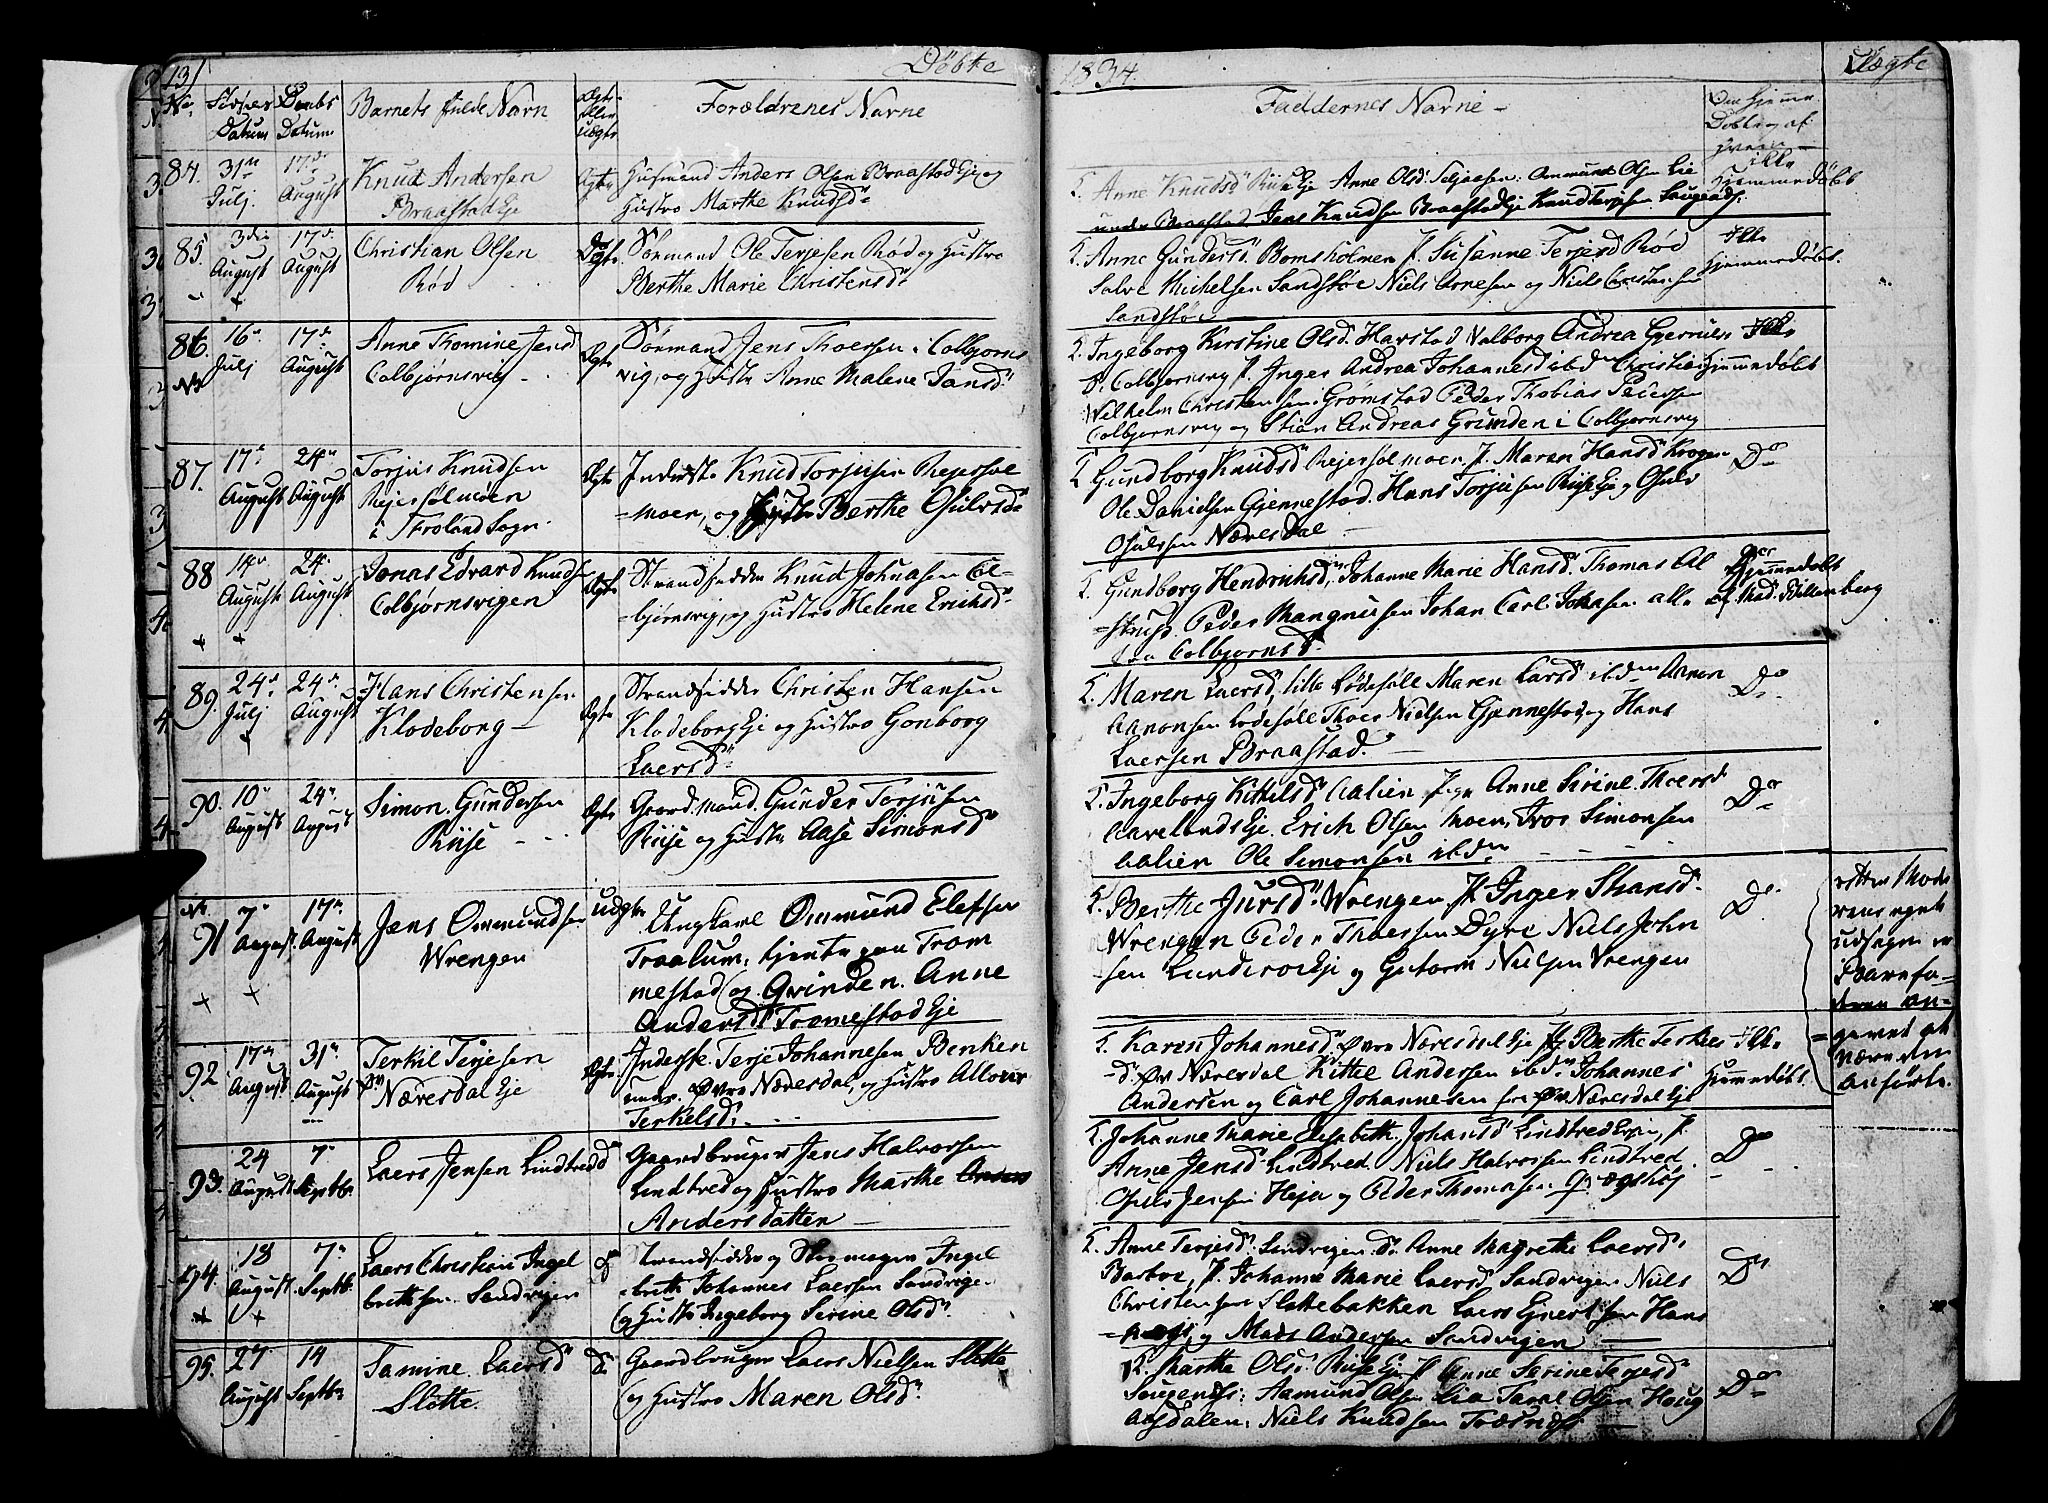 13/
Döbte
1834.
No
Datum
Daabs
Datum
Barnets fulde Navn
Ægte
eller
uægte
Forældrenes Navne
Faddernes Navne
Om hjemme
Döbt og af
hvem
84.
31te
Julj.
17de
August
Knud Andersen
Braastad Eje
Ægte
Husmand Anders Olsen Braastad Eje og
Hustro Marthe Knudsd.
Anne Knudsd Riise Eje Anne Olsd. Omund Olsen Lie
under Braastad, Jens Knudsen Braastad Eje Knud Terjesen
Ikke
Hjemmedöbt
85.
3die
August
17de
August
Christian Olsen
Röd
Ægte
Sömand Ole Terjesen Röd og Hustro
Berthe Marie Christensd.
Anne Gundersd. Bomsholmen J. Susanne Terjesd Röd
Salve Michelsen Sandstöe Niels Arnesen og Niels Christensen
Sandstöe
Ikke
Hjemmedöbt.
86.
16de
Julj
17de
August
Anne Thomine Jensd
Colbjørnsvig
Ægte
Sömand Jens Thoersen i Colbjørns
vig, og Hustr Anne Malene Jansd.
Ingeborg Kirstine Olsd. Harstad Valborg Andrea
Colbjørnsvig J. Inger Andrea Johannesd ibd Christian
Wilhelm Christensen Grömstad Peder Thobias Pedersen
Colbjørnsvig og Stian Andreas Grunden i Colbjørnsvig
Ikke
Hjemmedöbt
87.
17de
August
24de
August
Torjus Knudsen
Rejersølmoen
i Froland Sogn.
Ægte
Inderste Knud Torjusen Rejersøl
=moen, og Hustr Berthe Osulvsd.
Gundborg Knudsd Rejersølmoen J. Maren Hansd Krogen
Ole Danielsen Gjennestad. Hans Torjusen Riise Eje og Osulv
Osulvsen Næresdal
Do
88
14de
August
24de
August
Jonas Edvard Knudsen
Colbjørnsvigen
Ægte
Strandsidder Knud Johnasen Col-
=bjørnsvig, og Hustro Helene Erichsd.
Gundborg Hendrichsd, Johanne Marie Hansd. Thomas Al
Peder Mangnusen Johan Carl Johnsen alle
fra Colbjørnsv.
Hjemmedöbt
af Mad.
89.
24de
Julj
24de
August
Hans Christensen
Klodeborg
Ægte
Strandsidder Christen Hansen
Klodeborg Eje og Hustro Gonborg
Laersd
Maren Laersd, lille Lødesöll Maren Larsd ibden Aanon
Aanonsen Lødesöll Thor Nielsen Gjennestad og Hans
Laersen Braastad.
Do
90.
10de
August
24de
August
Simon Gundersen
Riise
Ægte
Gaardmand Gunder Torjusen
Riise og Hustr Aase Simonsd
Ingeborg Kittilsd. Aalien J. Anne Sirine Thoersd
Aavelands Eje. Erich Olsen Moen, Tvos Simonsen
Aalien Ole Simonsen ibden
Do
91
7de
August
17de
August
Jens Ommundsen
Wrengen
uægte
Ungkarl Ommund Elefsen
Traalum, tjente paa Trom
mestad og Qvinden Anne
Andersd Tromestad Eje
Berthe Jursd Wrengen J. Inger Shansd.
Wrengen Peder Thoersen Dyre Niels John
sen Lunderoe Eje og Gutorm Nielsen Vrengen
Do
efter Mode
rens egen
udsagn er
Barnefa-
deren an-
=gevet at
være den
anførte.
92
17de
August
31te
August
Terkil Terjesen
Øv Næresdal Eje
Ægte
Inderste Terje Johannesen Benken
under Øvre Næresdal, og Hustro
Terkelsd.
Karen Johannesd Øvre Næresdal Eje J. Berthe Terkels
=d. Øv Næresdal Kittil Andersen ibd Johannes
Andersen og Carl Johannesen fra Øv Næresdal Eje
Ikke
Hjemmedöbt.
93.
24
August
7de
Septbr.
Laers Jensen Lindtved
Do
Gaardbruger Jens Halvorsen
Lindtved og Hustro Marthe
Andersdatter
Johanne Marie Elisabeth Johansd Lindtved Eje, J.
Anne Jensd Lindtved. Niels Halvorsen Lindtved.
Osuls Jensen Heja og Peder Thomasen
Do
94.
18
August
7de
Septb.
Laers Christian Ingel
brethsen Sandvigen
Do
Strandsidder og Skomager Ingel
=breth Johannes Laersen Sandvigen
og Hustr. Ingeborg Serene Olsd.
Anne Terjesd. Sandvigen Anne Magrethe Laersd.
Barboe, J. Johanne Marie Laersd Sandvigen Niels
Christensen Slottebakken Laers Ejnersen Hans
og Mads Andersen Sandvigen
Do
95.
27
August
14
Septbr
Tamine Laersd
Slotte.
Do
Gaardbruger Laers Nielsen Slotte
og Hustro Maren Olsd.
Marthe Olsd. Riise Eje J. Anne Serine Terjesd
Aamund Olsen Lia Tarel Olsen Houg
Asdalen, Niels Knudsen
Do